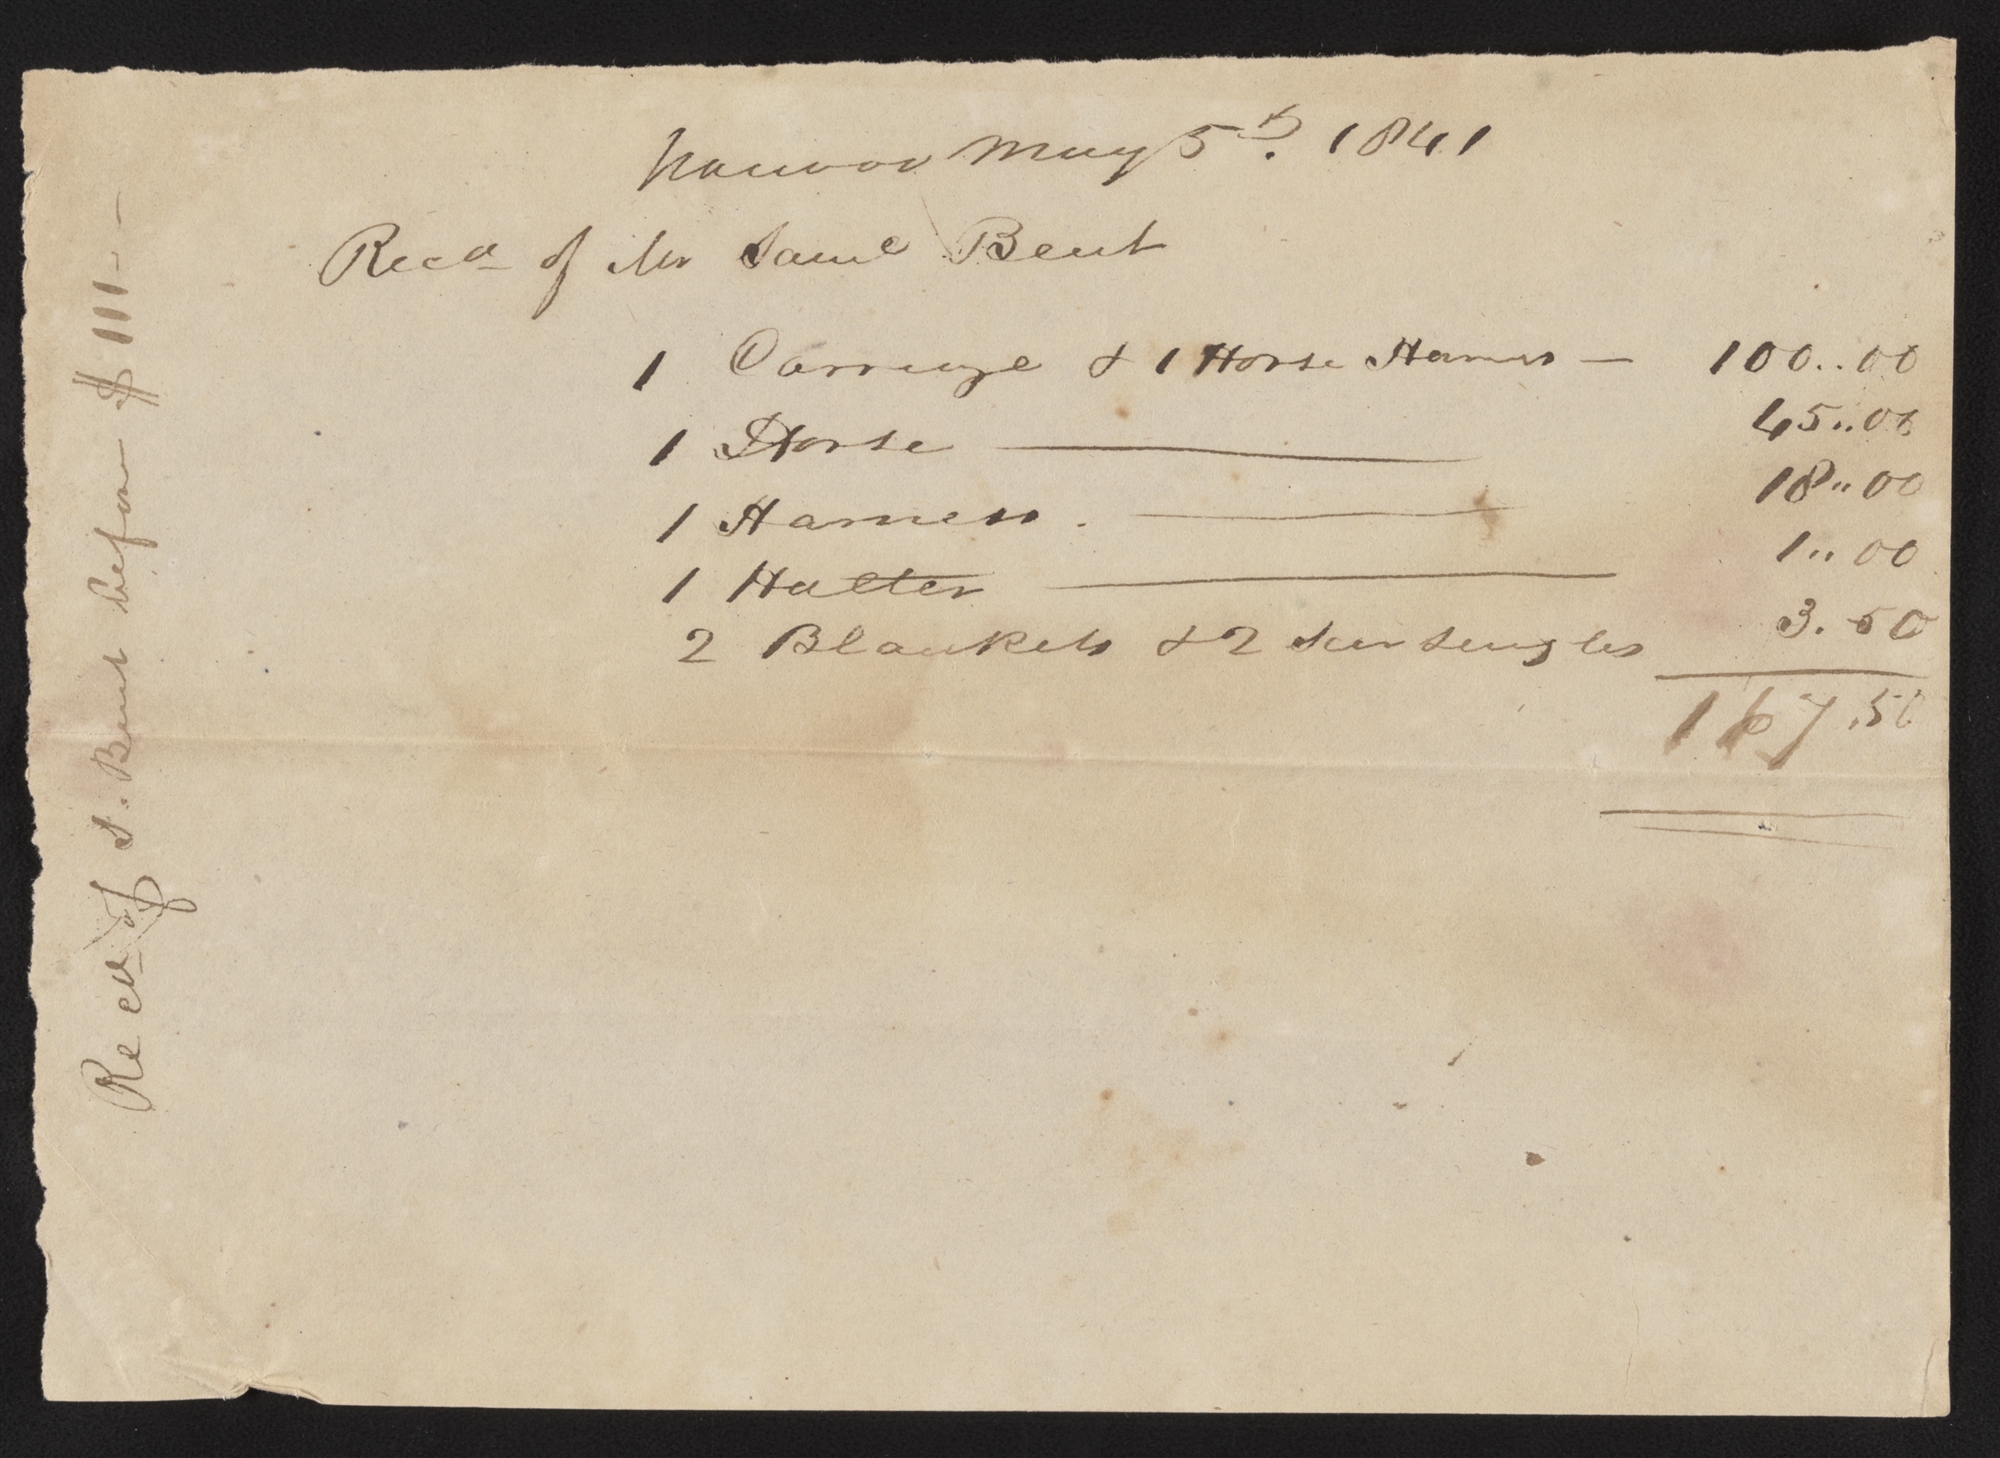 Nauvoo May 5th. 1841
Recd of Mr Saml Bent
1 Carriage & 1 Horse Harness — 100..00
1 Horse — 45..00
1 Harness. — 18..00
1 Halter — 1..00
2 Blankets & 2 Sursengles 3.50
167.50
Recd of S. Bent before $111.—